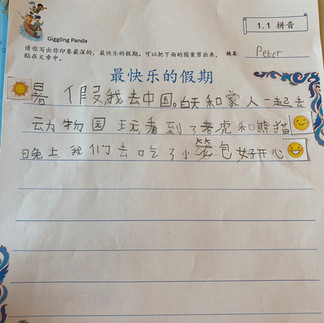 Giggling Panda
1.1 拼音
请你写出你印象最深的、最快乐的假期。可以把下面的图案剪出来，
贴在文章中。
姓名 Peter
最快乐的假期
暑假我去中国。白天和家人一起去
动物园玩看到了老虎和熊猫
晚上我们去吃了小笼包好开心